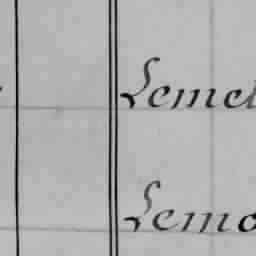 Lemet
Lemo